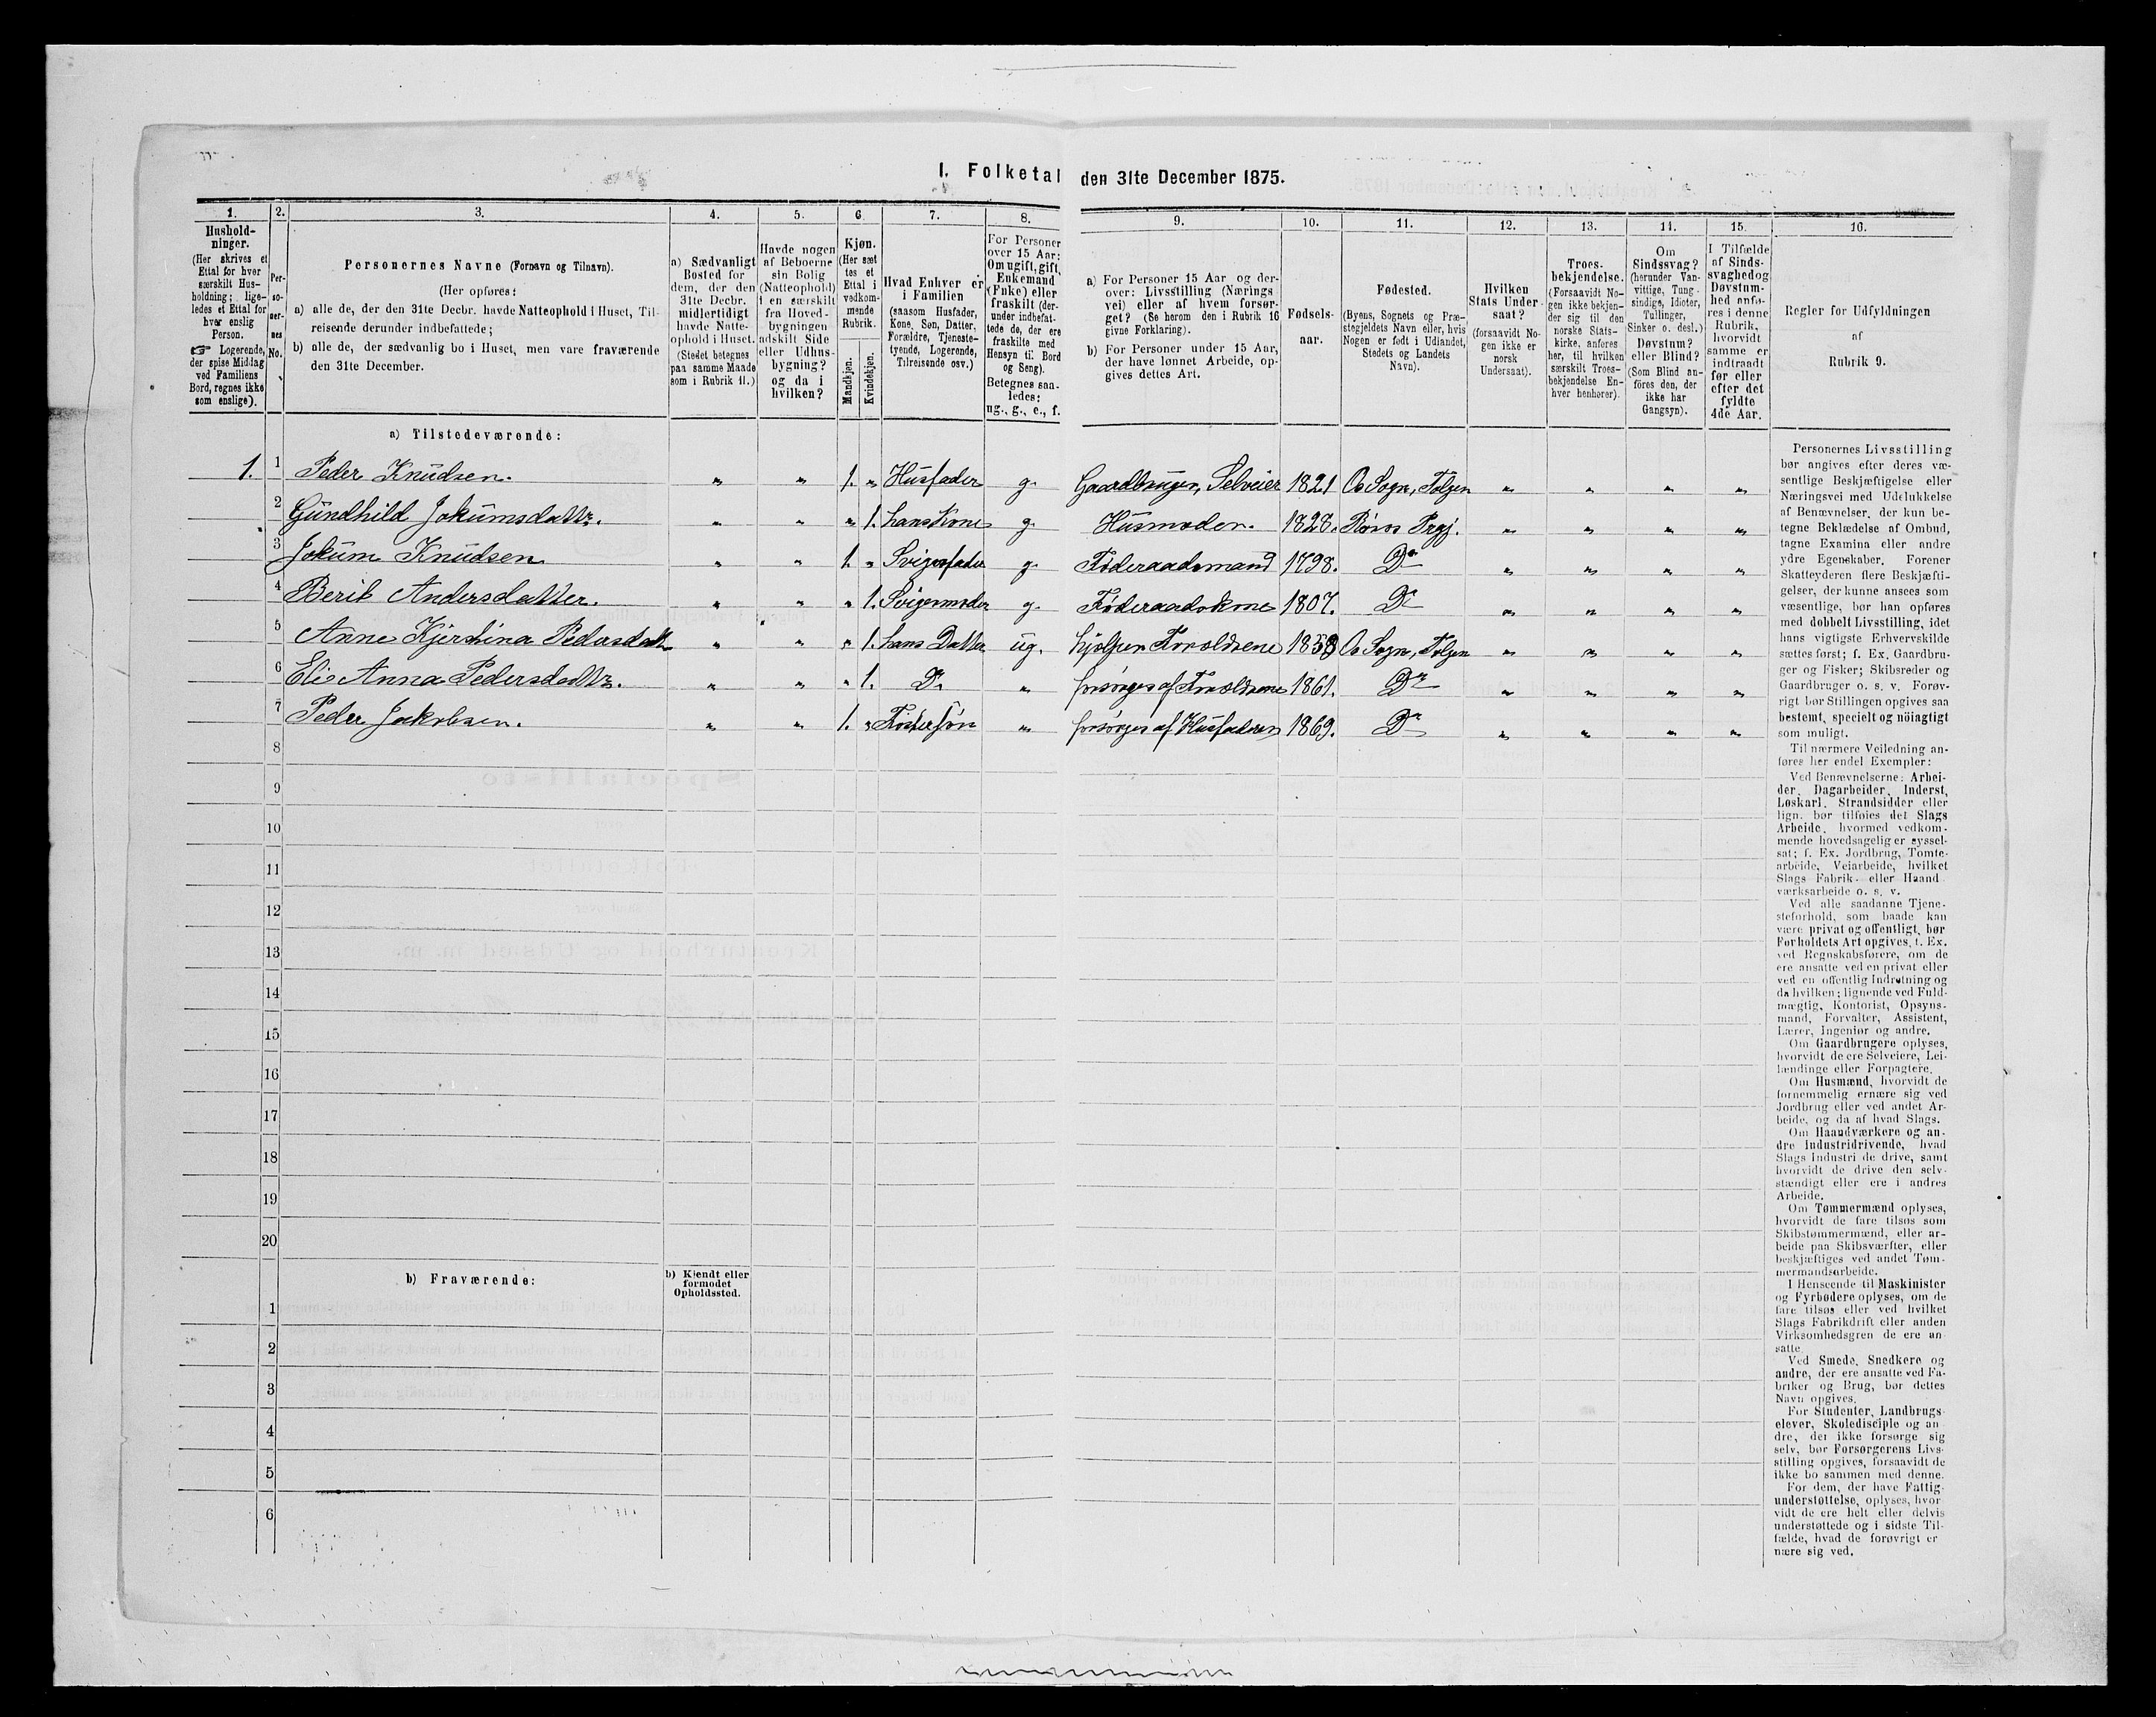 I. Folketal den 31te December 1875.
1. 2. 3. 4. 5. 6. 7. 8. 9. 10. 11. 12. 13. 14. 15. 16.
Hushold-
ninger.
(Her skrives et
Ettal for hver
særskilt Hus-
holdning; lige-
ledes et Ettal for
hver enslig
Person.
☞ Logerende,
der spise Middag
ved Familiens
Bord, regnes ikke
som enslige).
Per-
so-
ner-
nes
No.
Personernes Navne (Fornavn og Tilnavn).
(Her opføres:
a) alle de, der den 31te Decbr. havde Natteophold i Huset, Til-
reisende derunder indbefattede;
b) alle de, der sædvanlig bo i Huset, men vare fraværende
den 31te December.
a) Sædvanligt
Bosted for
dem, der den
31te Decbr.
midlertidigt
havde Natte-
ophold i Huset.
(Stedet betegnes
paa samme Maade
som i Rubrik 11.)
Havde nogen
af Beboerne
sin Bolig
(Natteophold)
i en særskilt
fra Hoved-
bygningen
adskilt Side
eller Udhus-
bygning?
og da i
hvilken?
Kjøn.
(Her sæt
tes et
Ettal i
vedkom-
mende
Rubrik.
Mandkjøn.
Kvindekjøn.
Hvad Enhver er
i Familien
(saasom Husfader,
Kone, Søn, Datter,
Forældre, Tjeneste-
tyende, Logerende,
Tilreisende osv.)
For Personer
over 15 Aar:
Om ugift, gift,
Enkemand
(Enke) eller
fraskilt (der-
under indbefat-
tede de, der ere
fraskilte med
Hensyn til Bord
og Seng).
Betegnes saa-
ledes:
ug., g., e., f.
a) For Personer 15 Aar og der-
over: Livsstilling (Nærings
vei) eller af hvem forsør-
get? (Se herom den i Rubrik 16
givne Forklaring).
b) For Personer under 15 Aar,
der have lønnet Arbeide, op-
gives dettes Art.
Fødsels-
aar.
Fødested.
(Byens, Sognets og Præ-
stegjeldets Navn eller, hvis
Nogen er født i Udlandet,
Stedets og Landets
Navn).
Hvilken
Stats Under-
saat?
(forsaavidt No-
gen ikke er
norsk
Undersaat).
Troes-
bekjendelse.
(Forsaavidt No-
gen ikke bekjen-
der sig til den
norske Stats-
kirke, anføres
her, til hvilken
særskilt Troes-
bekjendelse En-
hver henhører).
Om
Sindssvag?
(herunder Van-
vittige, Tung-
sindige, Idioter,
Tullinger,
Sinker o. desl.)
Døvstum?
eller Blind?
(Som Blind an-
føres den, der
ikke har
Gangsyn).
I Tilfælde
af Sinds-
svaghed og
Døvstum-
hed anfø-
res i denne
Rubrik,
hvorvidt
samme er
indtraadt
før eller
efter det
fyldte
4de Aar.
Regler for Udfyldningen
af
Rubrik 9.
a) Tilstedeværende:
1. 1 Peder Knudsen. " " 1. " Husfader g. Gaardbruger, Selveier 1821 Os Sogn, Tolgen " " " "
2 Gundhild Jokumsdattr. " " " 1. hans Kone g. Husmoder. 1828. Røros Prgj. " " " "
3 Jokum Knudsen " " 1. " Svigerfader g. Føderaadsmand 1798. Do " " " "
4 Berit Andersdatter. " " " 1. Svigermoder g. Føderaadskone 1807. Do " " " "
5 Anne Kjerstina Pedersdattr " " " 1. hans Datter ug. hjælper Forældrene 1858 Os Sogn, Tolgen " " " "
6 Eli Anna Pedersdattr. " " " 1. Do " forsørges af Forældrene 1861. Do " " " "
7 Peder Jakobsen. " " 1. " Fostersøn " forsørges af Husfaderen 1869. Do " " " "
8
9
10
11
12
13
14
15
16
17
18
19
20
b) Fraværende:
b) Kjendt eller
formodet
Opholdssted.
1
2
3
4
5
6
Personernes Livsstilling
bør angives efter deres væ-
sentlige Beskjæftigelse eller
Næringsvei med Udelukkelse
af Benævnelser, der kun be-
tegne Beklædelse af Ombud,
tagne Examina eller andre
ydre Egenskaber. Forener
Skatteyderen flere Beskjæfti-
gelser, der kunne ansees som
væsentlige, bør han opføres
med dobbelt Livsstilling, idet
hans vigtigste Erhvervskilde
sættes først; f. Ex. Gaardbru-
ger og Fisker; Skibsreder og
Gaardbruger o. s. v. Forøv-
rigt bør Stillingen opgives saa
bestemt, specielt og nöiagtigt
som muligt.
Til nærmere Veiledning an-
føres her endel Exempler:
Ved Benævnelserne: Arbei-
der, Dagarbeider, Inderst,
Løskarl, Strandsidder eller
lign. bør tilføies det Slags
Arbeide, hvormed vedkom-
mende hovedsagelig er syssel-
sat; f. Ex. Jordbrug, Tomte-
arbeide, Veiarbeide, hvilket
Slags Fabrik- eller Haand
værksarbeide o. s. v.
Ved alle saadanne Tjene-
steforhold, som baade kan
være privat og offentligt, bør
Forholdets Art opgives, f. Ex.
ved Regnskabsførere, om de
ere ansatte ved en privat eller
ved en offentlig Indretning og
da hvilken; lignende ved Fuld-
mægtig, Kontorist, Opsyns-
mand, Forvalter, Assistent,
Lærer, Ingeniør og andre.
Om Gaardbrugere oplyses,
hvorvidt de ere Selveiere, Lei-
lændinge eller Forpagtere.
Om Husmænd, hvorvidt de
fornemmelig ernære sig ved
Jordbrug eller ved andet Ar-
beide, og da af hvad Slags.
Om Haandværkere og an-
dre Industridrivende, hvad
Slags Industri de drive, samt
hvorvidt de drive den selv-
stændigt eller ere i andres
Arbeide.
Om Tømmermænd oplyses,
hvorvidt de fare tilsøs som
Skibstømmermænd, eller ar-
beide paa Skibsværfter, eller
beskjæftiges ved andet Tøm-
mermandsarbeide.
I Henseende til Maskinister
og Fyrbødere oplyses, om de
fare tilsøs eller ved hvilket
Slags Fabrikdrift eller anden
Virksomhedsgren de ere an
satte.
Ved Smede, Snedkere og
andre, der ere ansatte ved Fa-
briker og Brug, bør dettes
Navn opgives.
For Studenter, Landbrugs-
elever, Skoledisciple og an-
dre, der ikke forsørge sig
selv, bør Forsørgerens Livs-
stilling opgives, forsaavidt de
ikke bo sammen med denne.
For dem, der have Fattig-
understøttelse, oplyses, hvor-
vidt de ere helt eller delvis
understøttede og i sidste Til-
fælde, hvad de forøvrigt er
nære sig ved.